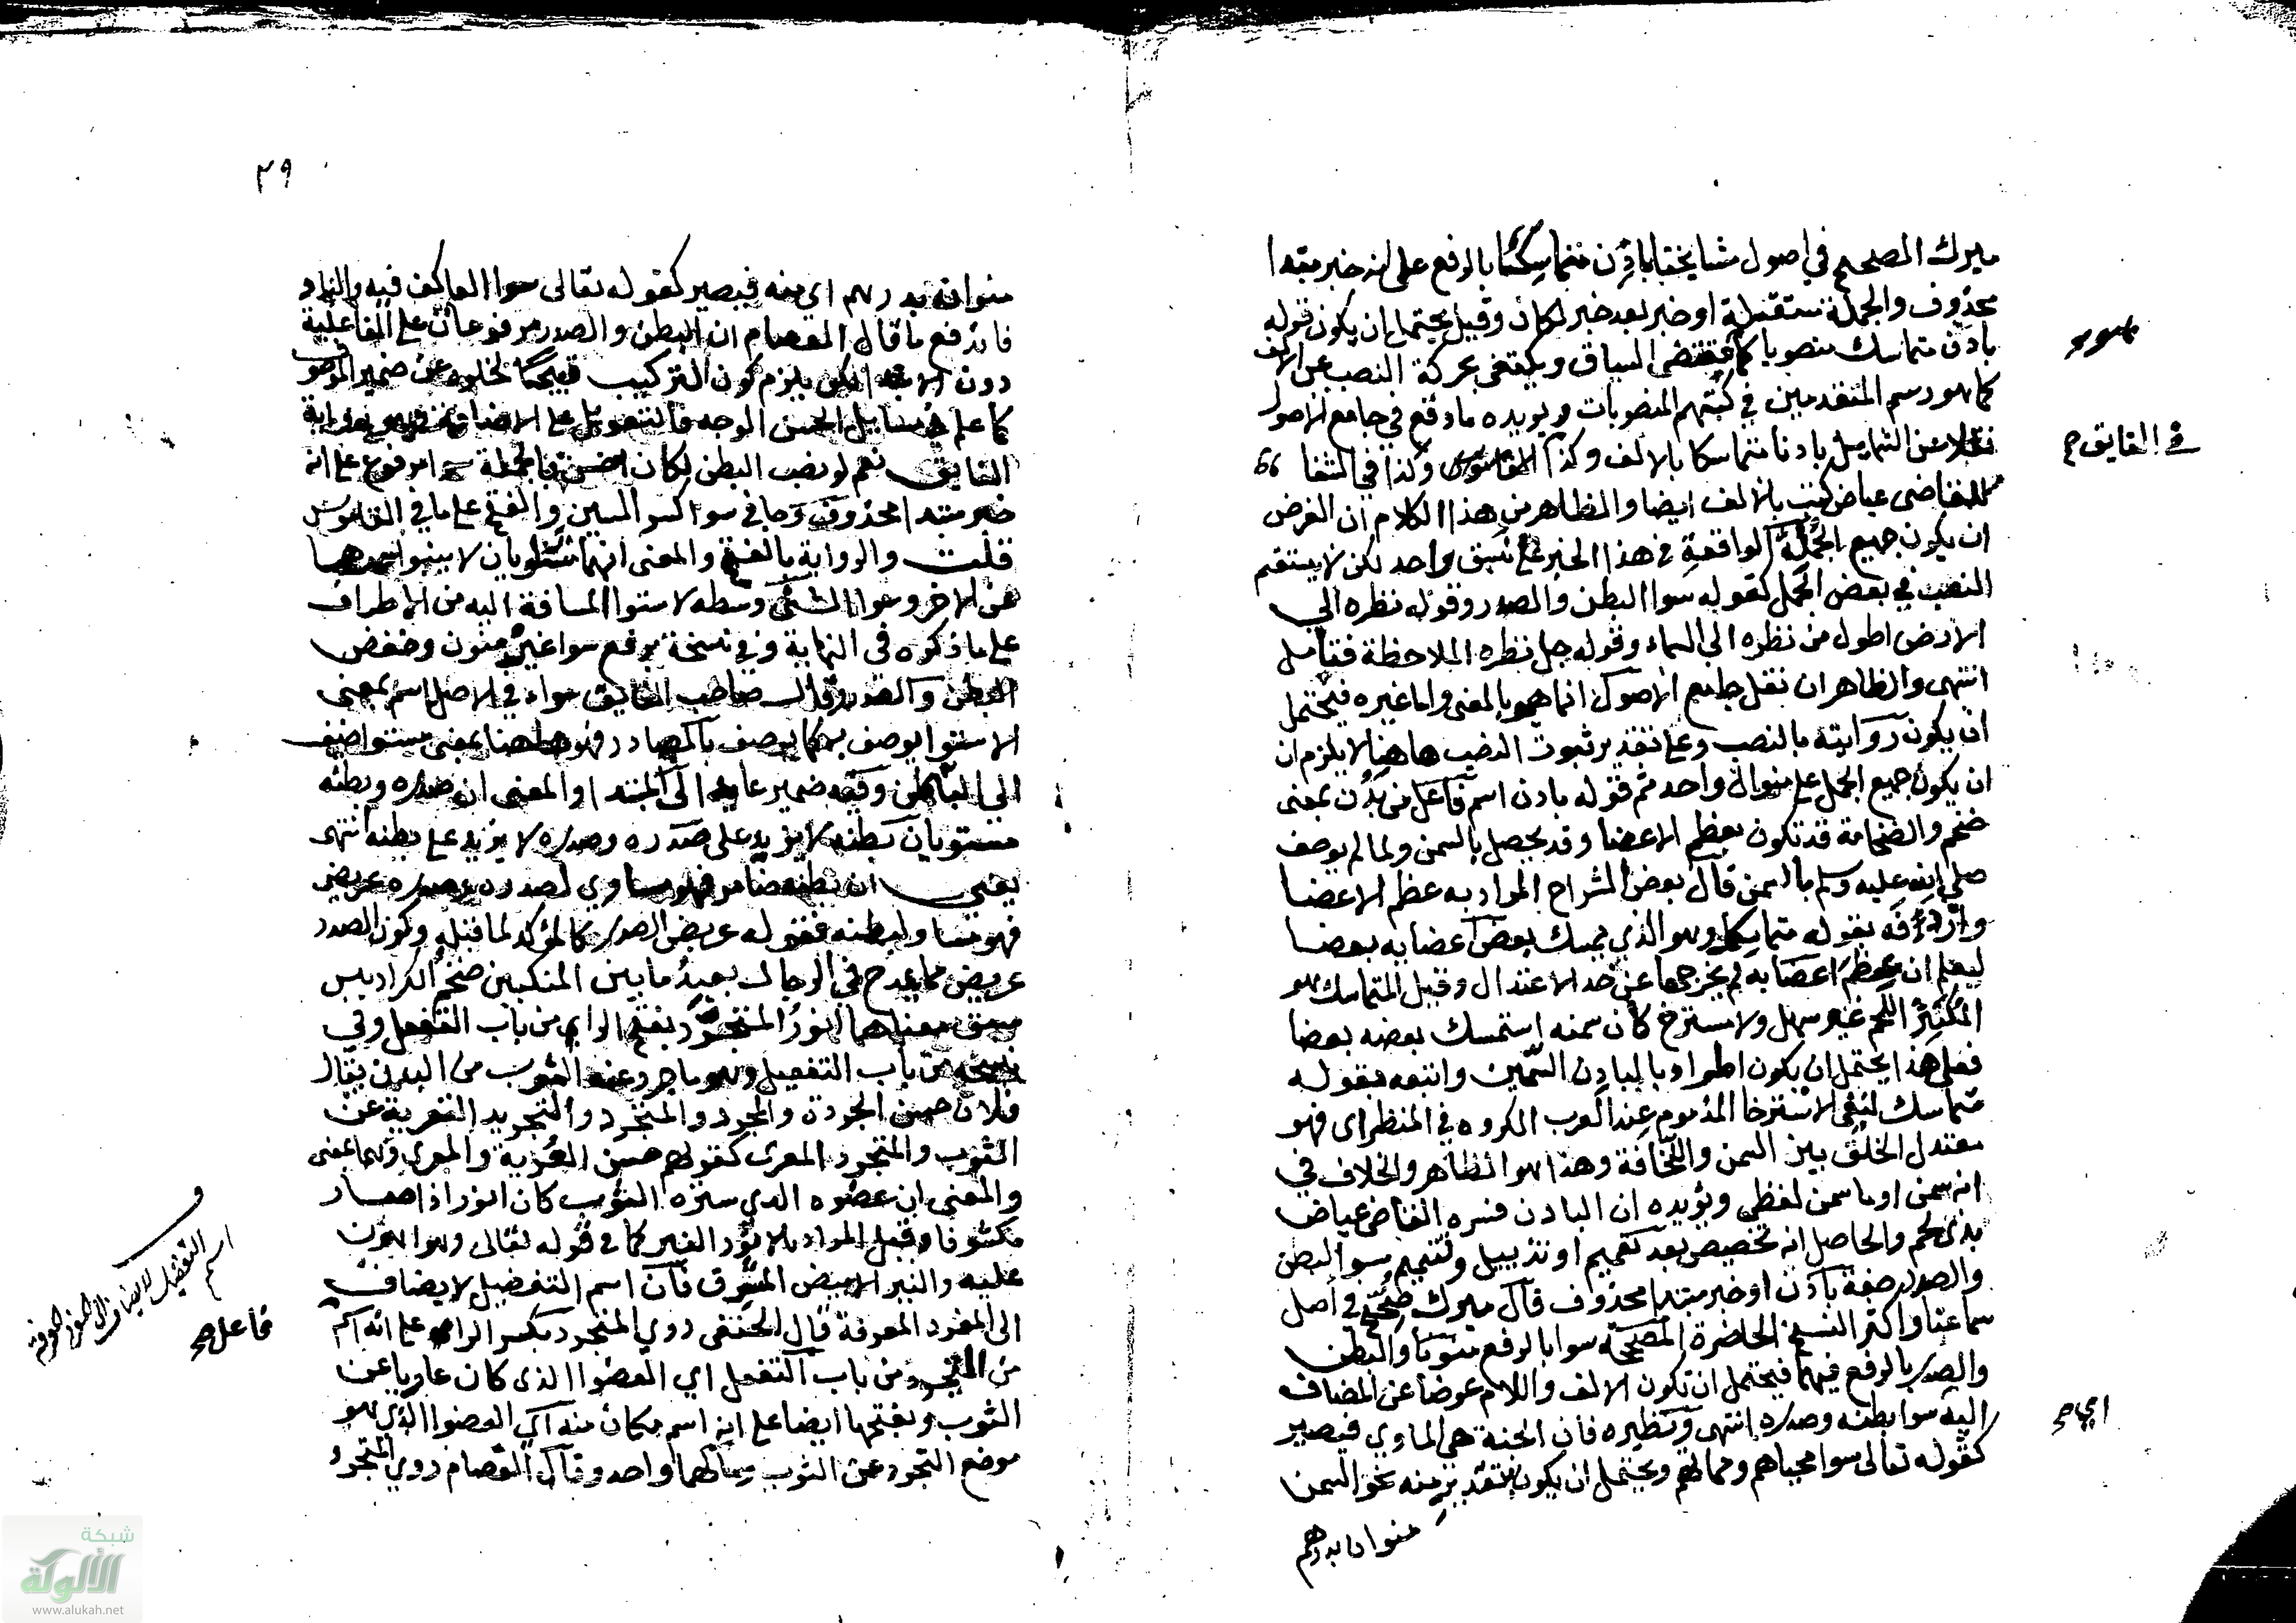 ميرك المصحح في اصول مشايخنا بادن متماسك بالرفع على انه خبر مبتدا
محذوف والجملة مستقلة او خبر بعد خبر لكان وقيل يحتمل ان يكون قوله
بادن متماسك منصوبا كما يقتضي السياق ويكتفى بحركة النصب عن الالف
كما هو رسم المتقدمين في كتبهم المنصوبات ويويده ما وقع في جامع الاصول
نقلا عن الشمايل بادنا متماسكا بالالف وكذا وكذا في الشفا
في الفايق صح
للقاضي عياض كتب بالالف ايضا والظاهر من هذا الكلام ان الغرض
ان يكون جميع الجملة الواقعة في هذا الخبر على نسق واحد لكن لا يستقيم
النصب في بعض الجمل كقوله سوا البطن والصدر وقوله نظره الي
الارض اطول من نظره الى السماء وقوله جل نظره الملاحظة فتامل
انتهى والظاهر ان نقل جامع الاصول انما هو بالمعنى واما غيره فيحتمل
ان يكون روايته بالنصب وعلى تقدير ثبوت النصب هاهنا لا يلزم ان
ان يكون جميع الجمل على منوال واحد ثم قوله بادن اسم فاعل من بدن بمعنى
ضخم والضخامة قد تكون بعظم الاعضا وقد يحصل بالسمن ولما لم يوصف
صلى الله عليه وسلم بالسمن قال بعض الشراح المراد به عظم الاعضا
واردفه بقوله متماسك وهو الذي يمسك بعض اعضايه بعضا
ليعلم ان عظم اعضايه لم يخرجها عن حد الاعتدال وقيل المتماسك هو
المكتنز اللحم غير سهل ولا مسترخ كان سمنه استمسك بعضه بعضا
فعلى هذا يحتمل ان يكون المراد بالبادن السمين واتبعه بقوله
متماسك لنفي الاسترخا المذموم عند العرب المكروه في المنظر اي فهو
معتدل الخلق بين السمن والنحافة وهذا هو الظاهر والخلاف في
انه سمن او ما سمن لفظي ويؤيده ان البادن فسره القاضي عياض
بذي لحم والحاصل انه تخصيص بعد تعميم او تذييل وتتميم سوا البطن
والصدر صفة بادن او خبر مبتدا محذوف قال ميرك صحح في اصل
سماعنا واكثر النسخ الحاضرة المصححة سوا بالرفع منونا والبطن
والصدر بالرفع فيهما فيحتمل ان تكون الالف واللام عوضا عن المضاف
اليه سوا بطنه وصدره انتهى ونظيره فان الجنة هي الماوي فيصير
اي صح
كقوله تعالى سوا محياهم ومماتهم ويحتمل ان يكون بتقدير منه نحو السمن
منوان بدرهم
٢٩
منوان بدرهم اي منه فيصير كقوله تعالى سوا العاكف فيه والباد
فاندفع ما قال العصام ان البطن والصدر مرفوعان على الفاعلية
دون لكن يلزم كون التركيب قبيحا لخلوه عن ضمير الموصوف
كما علم في مسايل الحسن الوجه فالتعويل على الاضافة رواية
الفايق نعم لو نصب البطن لكان احسن فالجملة مرفوع على انه
خبر مبتدا محذوف وجا في سوا كسر السين والفتح على ما في القاموس
قلت والرواية بالفتح والمعنى انهما متساويان لا ينبو احدهما
عن الاخر وسوا الشي وسطه لاستوا المسافة اليه من الاطراف
على ما ذكره في النهاية وفي نسخة برفع سوا غير منون وخفض
البطن والصدر وقال صاحب الفايق سواء في الاصل اسم بمعنى
الاستوا يوصف به كما يوصف بالمصادر فهو هاهنا بمعنى مستو اضيف
الى البطن وفيه ضمير عايد الى المبتدا والمعنى ان صدره وبطنه
مستويان بطنه لا يزيد على صدره وصدره لا يزيد على بطنه انتهى
يعني ان بطنه ضامر فهو مساوي لصدره وصدره عريض
فهو مساو لبطنه فقوله عريض الصدر كالمؤكد لما قبله وكون الصدر
عريض مما يمدح في الرجال بعيد ما بين المنكبين ضخم الكراديس
سبق معناهما انور المتجرد بفتح الراي من باب التفعل وفي
نسخة من باب التفعيل وهو ما جرد عنه الثوب من البدن يقال
فلان حسن الجردة والمجرد والمتجرد والتجريد التعرية عن
الثوب والمتجرد المعرى كقولهم حسن العرية والمعرى وهما بمعنى
والمعنى ان عضوه الذي ستره الثوب كان انور اذا صار
مكشوفا وقيل المراد بالانور النير كما في قوله تعالى وهو اهون
عليه والنير الابيض المشرق فان اسم التفضيل لا يضاف
الى المفرد المعرفة قال الحنفي روي المتجرد بكسر الرا على انه اسم
فاعل صح
من التجرد من باب التفعل اي العضوا الذي كان عاريا عن
الثوب وبفتحها ايضا على انه اسم مكان منه اي العضوا الذي هو
موضع التجرد عن الثوب ومآلهما واحد وقال العصام روي المتجرد
اسم التفضيل لا يضاف الى المفرد المعرفة
شبكة
الألوكة
www.alukah.net